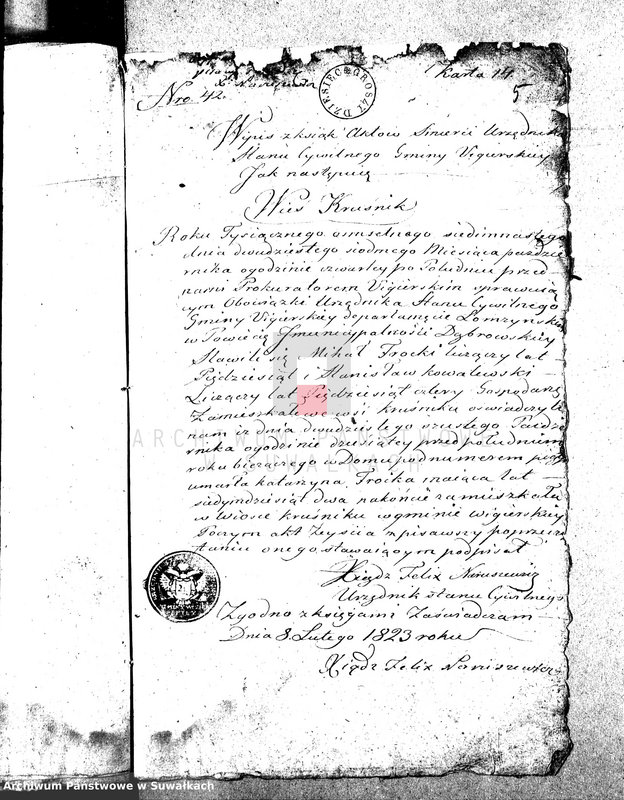 Karta 14
5
Nro 42.
DZIESIEC GROSZY
Wypis z ksiąk Aktow Śmierci Urzędnik
Stanu Cywilnego Gminy Vigierskiey
Jak następuią
Wieś Krusnik
Roku Tysiącznego osmsetnego siedimnastego
dnia dwudziestego siodmego Miesiąca pazdzie
rnika ogodzinie czwartey po Południu przed
nami Prokuratorem Vigierskim sprawuią
cym Obowiązki Urzędnika Stanu Cywilnego
Gminy Vigierskiey departamęcie Łomzynski
w Powiecie Dąbrowskiey
Stawili się Mihał Trocki liczący lat
Piędziesiąt i Stanisław kowalewski
Liczący lat Piędziesiąt cztery Gospodarze
Zamieszkałe we wsi krusniku oswiadczyli
nam iz dnia dwudziestego szustego Pazdzie
rnika ogodzinie dziesiątey przed południem
roku bierzącego w Domu pod numerem
umarła katarzyna Troika maiąca lat
siedymdziesiąt dwa nakońcie zamieszkała
w wiosce kruśniku w gminie wigierskiey
Poczym akt Zeyscia zpisawszy poprzeczy
taniu onego stawaiącym podpisał
Xiądz Felix Naruszewicz
Urzędnik stanu Cywilnego
Zgodno z księgami Zaświadczam
Dnia 8 Lutego 1823 roku
Xiądz Felix Naruszewicz
ARCHIWUM PAŃSTWOWE
W SUWAŁKACH
Archiwum Państwowe w Suwałkach